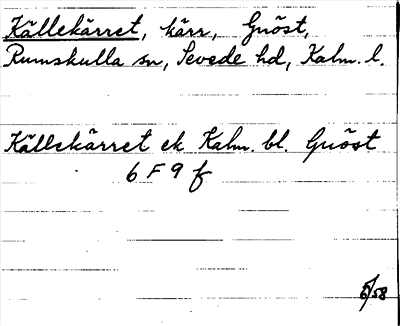 Källekärret, kärr, Gnöst,
Rumskulla sn, Sevede hd, Kalm. l.
Källekärret ek Kalm. bl. Gnöst
6 F 9 f
6/58